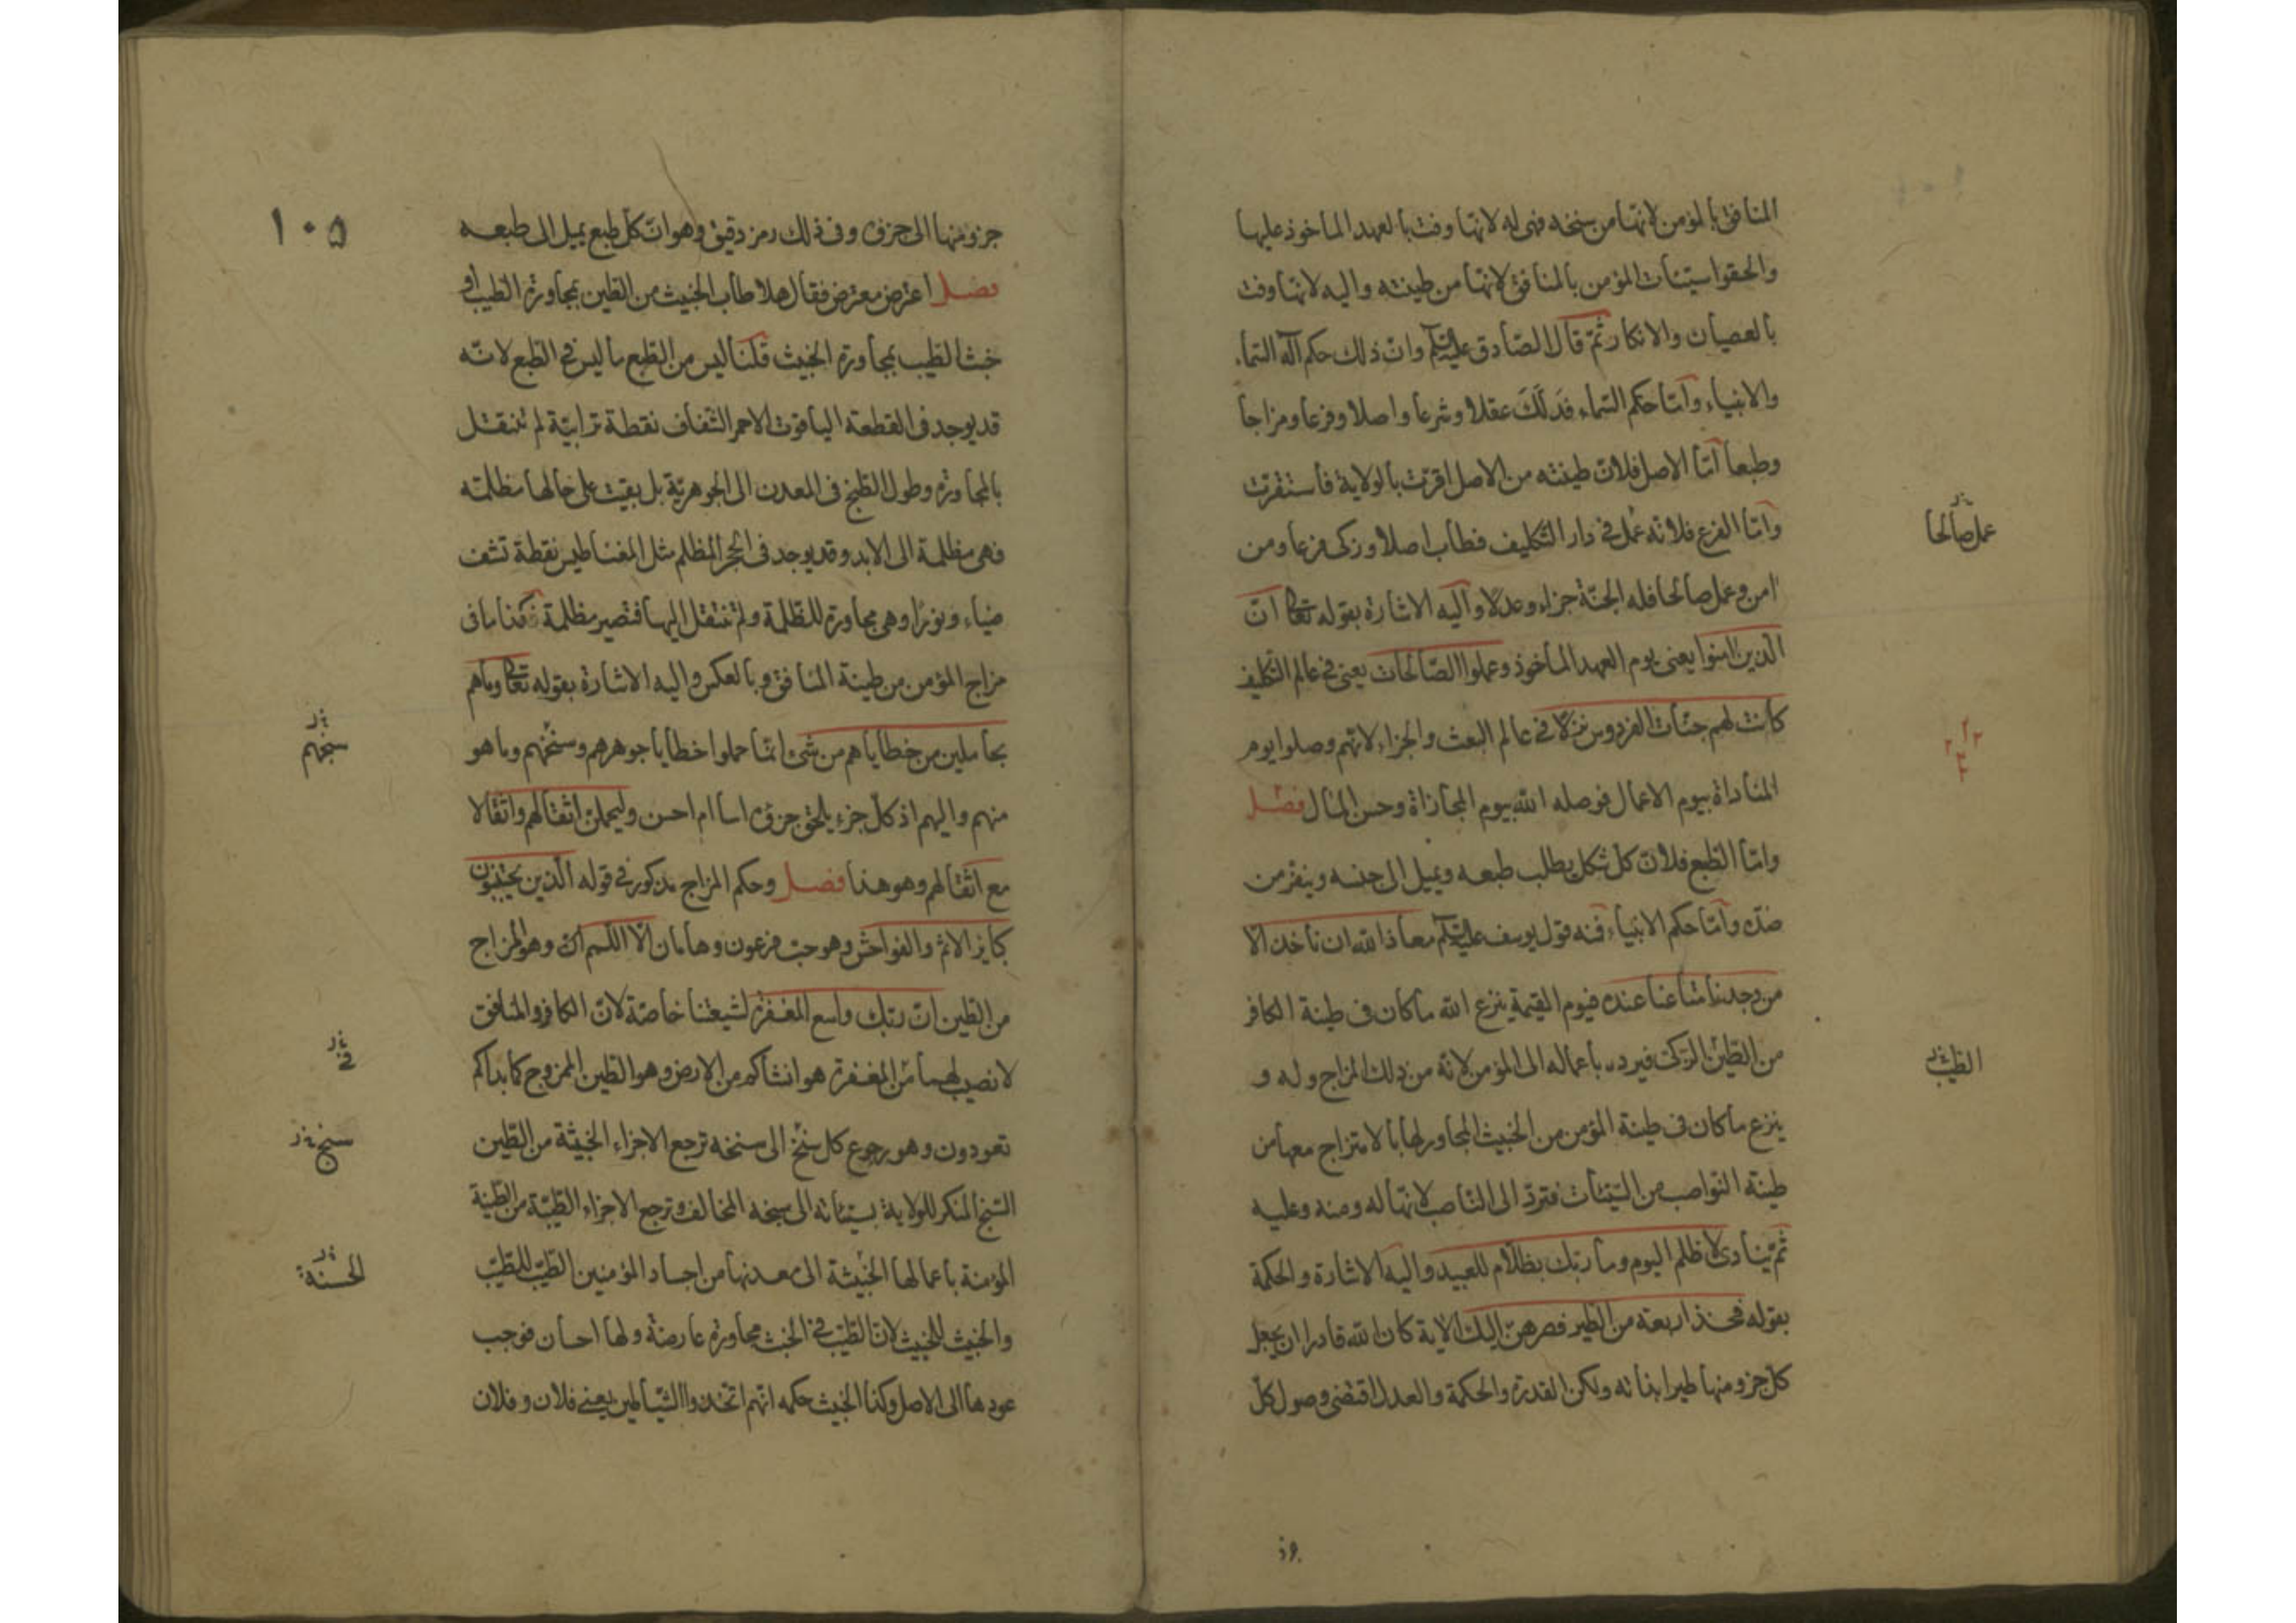 المنافق بالمؤمن لانها من سنخه فهى له لانها وفت بالعهد الماخوذ عليها
والحقوا سيئات المؤمن بالمنافق لانها من طينته واليه لانها وفت
بالعصيان والانكار ثم قال الصادق عليه السلام وان ذلك حكم اله السماء
والانبياء واما حكم السماء فذلك عقلا وشرعا واصلا وفرعا ومزاجا
وطبعا اما الاصل فلان طينته من الاصل اقرت بالولاية فاستقرت
عمل صالحا
واما الفرع فلانه عمل فى دار التكليف فطاب اصلا وزكى فرعا ومن
امن وعمل صالحا فله الجنة جزاء وعدلا واليه الاشارة بقوله تعالى ان
الذين امنوا يعنى يوم العهد الماخوذ وعملوا الصالحات يعنى فى عالم التكليف
كانت لهم جنات الفردوس نزلا فى عالم البعث والجزاء لانهم وصلوا يوم
المناداة بيوم الاعمال فوصله الله بيوم المجازاة وحسن المنال فصل
واما الطبع فلان كل شكل يطلب طبعه ويميل الى جنسه وينفر من
ضده واما حكم الانبياء فنه قول يوسف عليه السلام معاذ الله ان ناخذ الا
من وجدنا متاعنا عنده فيوم القيمة ينزع الله ما كان فى طينة الكافر
من الطين الزكى فيرده باعماله الى المؤمن لانه من ذلك المزاج وله و
الطيب
ينزع ما كان فى طينة المؤمن من الخبيث المجاور لها بالامتزاج معها من
طينة النواصب من السيئات فترد الى الناصب لانها له ومنه وعليه
ثم ينادى لا ظلم اليوم وما ربك بظلام للعبيد واليه الاشارة والحكمة
بقوله فخذ اربعة من الطير فصرهن اليك الاية كان الله قادرا ان يجعل
كل جزو منها طيرا بذاته ولكن القدرة والحكمة والعدل اقتضى وصول كل
جزو منها الى جزؤه وفى ذلك رمز دقيق وهو ان كل طبع يميل الى طبعه
١٠٥
فصل اعترض معترض فقال هلا طاب الخبيث من الطين بمجاورة الطيب او
خبث الطيب بمجاورة الخبيث قلنا ليس من الطبع ما ليس فى الطبع لانه
قد يوجد فى القطعة الياقوت الاحمر الشفاف نقطة ترابية لم تنتقل
بالمجاورة وطول الطبخ فى المعدن الى الجوهرية بل بقيت على حالها مظلمة
فهى مظلمة الى الابد وقد يوجد فى الحجر المظلم مثل المغناطيس نقطة تشف
ضياء ونورا وهى مجاورة للظلمة ولم تنتقل اليها فتصير مظلمة فكذا ما فى
مزاج المؤمن من طينة المنافق وبالعكس واليه الاشارة بقوله تعالى وما هم
بحاملين من خطاياهم من شئ انما حملوا خطايا جوهرهم وسنخهم وما هو
سنخهم
منهم واليهم اذ كل جزء يلحق جزؤه اسا ام احسن وليحملن اثقالهم واثقالا
مع اثقالهم وهو هذا فصل وحكم المزاج مذكور فى قوله الذين يجتنبون
كبائر الاثم والفواحش وهو حب فرعون وهامان الا اللمم ان وهو المزاج
من الطين ان ربك واسع المغفرة لشيعتنا خاصة لان الكافر والمنافق
لا نصيب لهما من المغفرة هو انشاكم من الارض وهو الطين الممزوج كما بداكم
فى
تعودون وهو رجوع كل سنخ الى سنخه ترجع الاجزاء الخبيثة من الطين
سنخ
السنخ المنكر للولاية بسيئاته الى سنخه المخالف وترجع الاجزاء الطيبة من الطينة
المؤمنة باعمالها الخبيثة الى معدنها من اجساد المؤمنين الطيب للطيب
الحسنة
والخبيث للخبيث لان الطيب فى الخبث مجاورة عارضة ولها احسان فوجب
عودها الى الاصل وكذا الخبيث حكمه انهم اتخذوا الشياطين يعنى فلان وفلان